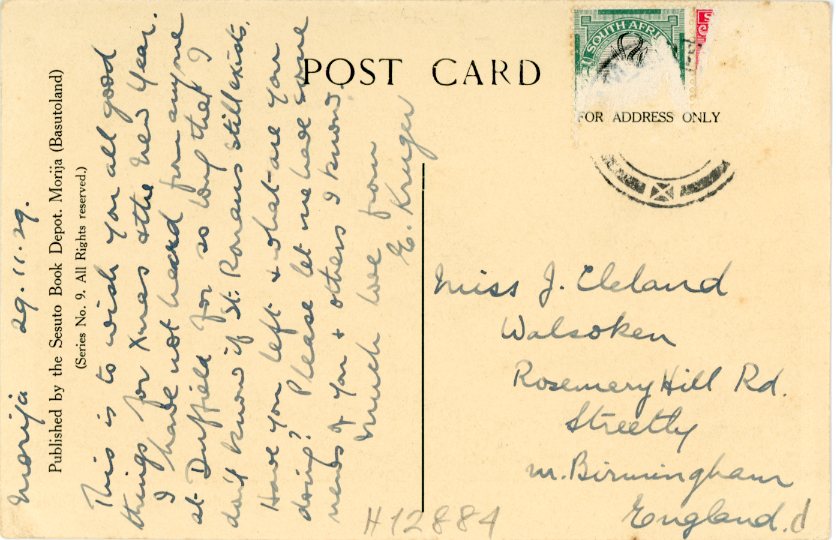 POST CARD
SOUTH AFRI
FOR ADDRESS ONLY
Published by the Sesuto Book Depot, Morija (Basutoland)
(Series No. 9. All Rights reserved.)
Morija 29.11.29.
This is to wish you all good
things for Xmas & the New Year.
I have not heard from anyone
at Duffield for so long that I
don't know if St. Ronans still exists.
Have you left & what are you
doing? Please let me have some
news of you & others I know.
Much love from
E. Kruger
Miss J. Cleland
Walsoken
Rosemary Hill Rd.
Streetly
nr. Birmingham
England.
H12884